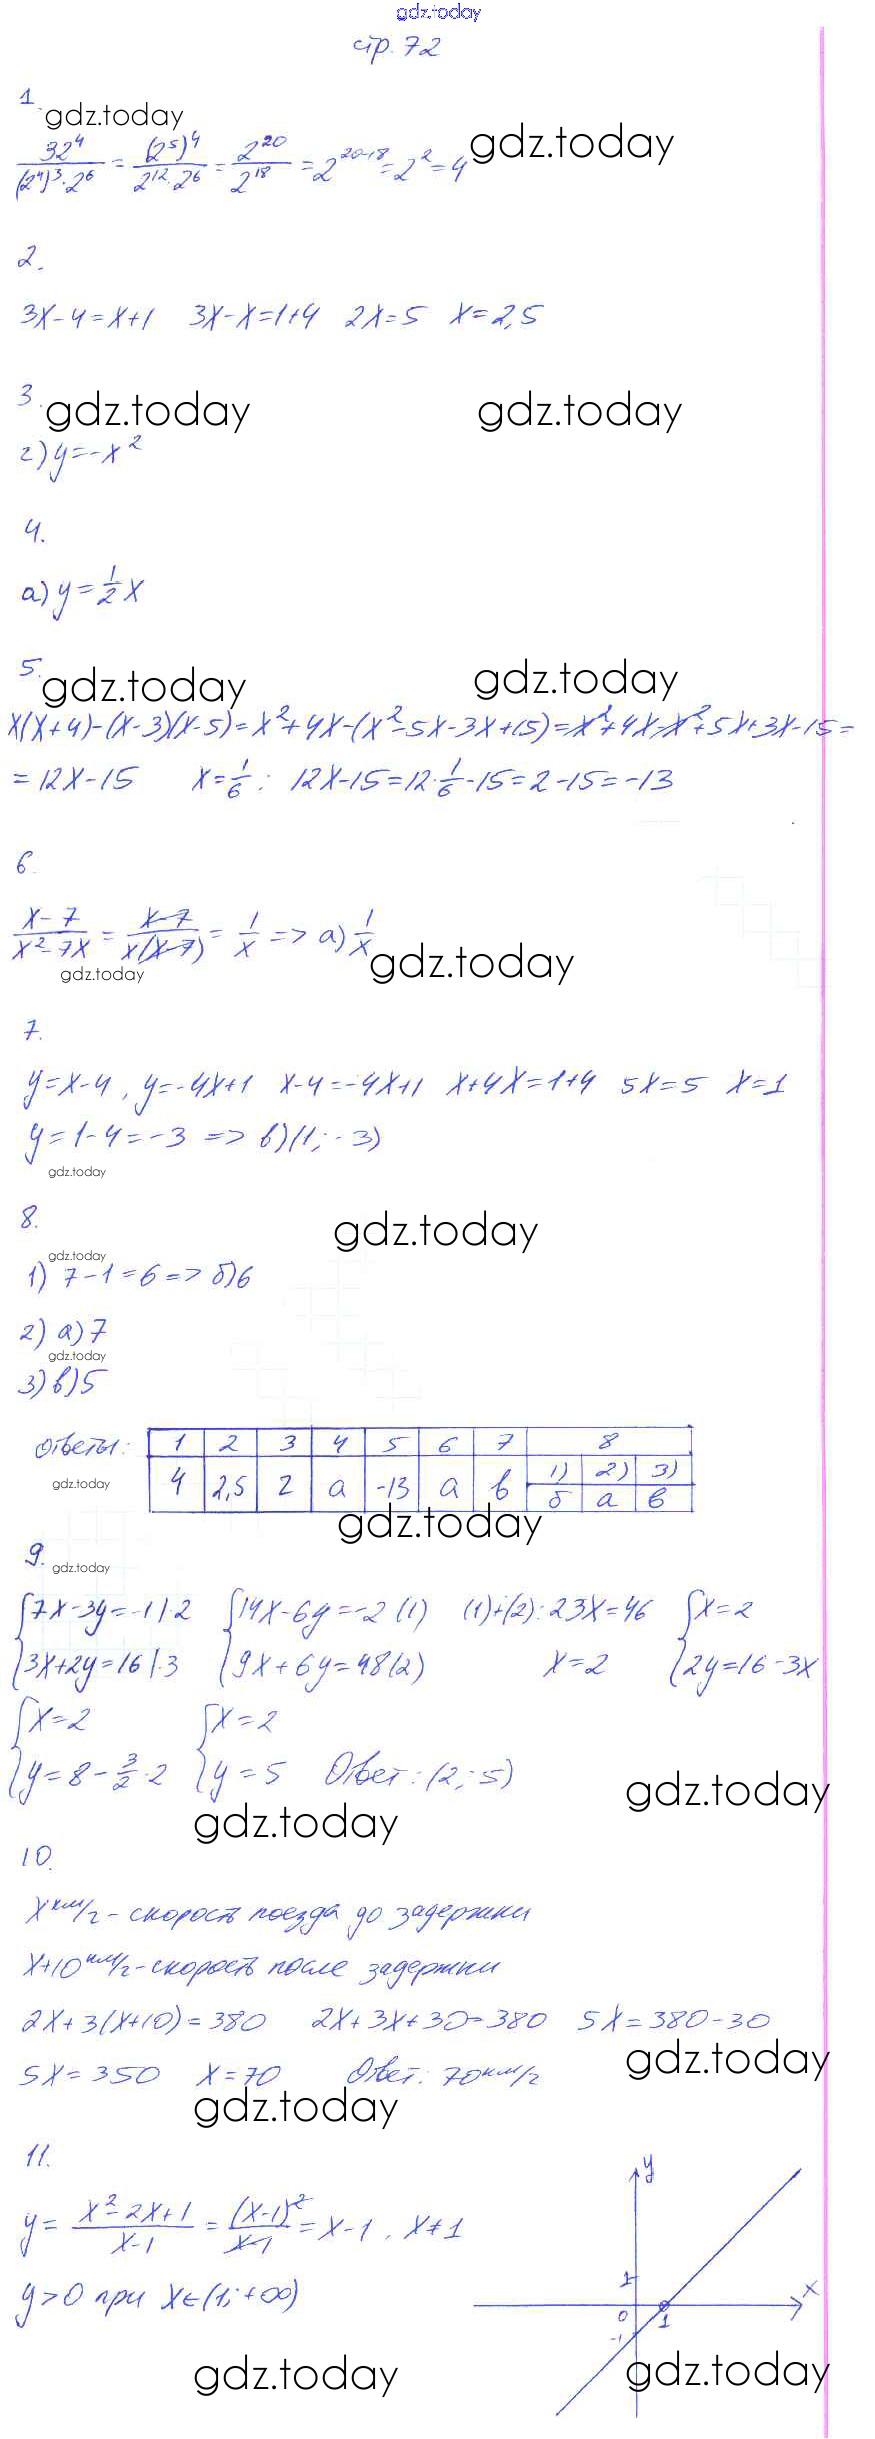 gdz.today
стр. 72
1.
gdz.today
32⁴/((2⁴)³·2⁶) = (2⁵)⁴/(2¹²·2⁶) = 2²⁰/2¹⁸ = 2²⁰⁻¹⁸ = 2² = 4 gdz.today
2.
3x-4=x+1 3x-x=1+4 2x=5 x=2,5
3.
gdz.today gdz.today
г) y=-x²
4.
а) y=1/2 x
5.
gdz.today gdz.today
x(x+4)-(x-3)(x-5)=x²+4x-(x²-5x-3x+15)=x²+4x-x²+5x+3x-15=
=12x-15 x=1/6: 12x-15=12·1/6-15=2-15=-13
6.
(x-7)/(x²-7x) = (x-7)/(x(x-7)) = 1/x => а) 1/x
gdz.today gdz.today
7.
y=x-4, y=-4x+1 x-4=-4x+1 x+4x=1+4 5x=5 x=1
y=1-4=-3 => в) (1; -3)
gdz.today
8.
gdz.today
gdz.today
1) 7-1=6=> б) 6
2) а) 7
gdz.today
3) в) 5
Ответы: 1 2 3 4 5 6 7 8
1) 2) 3)
4 2,5 г а -13 а в б а в
gdz.today
gdz.today
9.
gdz.today
{7x-3y=-1 |·2 {14x-6y=-2 (1) (1)+(2): 23x=46 {x=2
{3x+2y=16 |·3 {9x+6y=48 (2) x=2 {2y=16-3x
{x=2 {x=2
{y=8-3/2·2 {y=5 Ответ: (2; 5)
gdz.today
gdz.today
10.
x км/ч - скорость поезда до задержки
x+10 км/ч - скорость после задержки
2x+3(x+10)=380 2x+3x+30=380 5x=380-30
gdz.today
5x=350 x=70 Ответ: 70 км/ч
gdz.today
11.
y
y=(x²-2x+1)/(x-1) = (x-1)²/(x-1) = x-1, x≠1
y>0 при x∈(1; +∞)
1
x
0 1
-1
gdz.today gdz.today